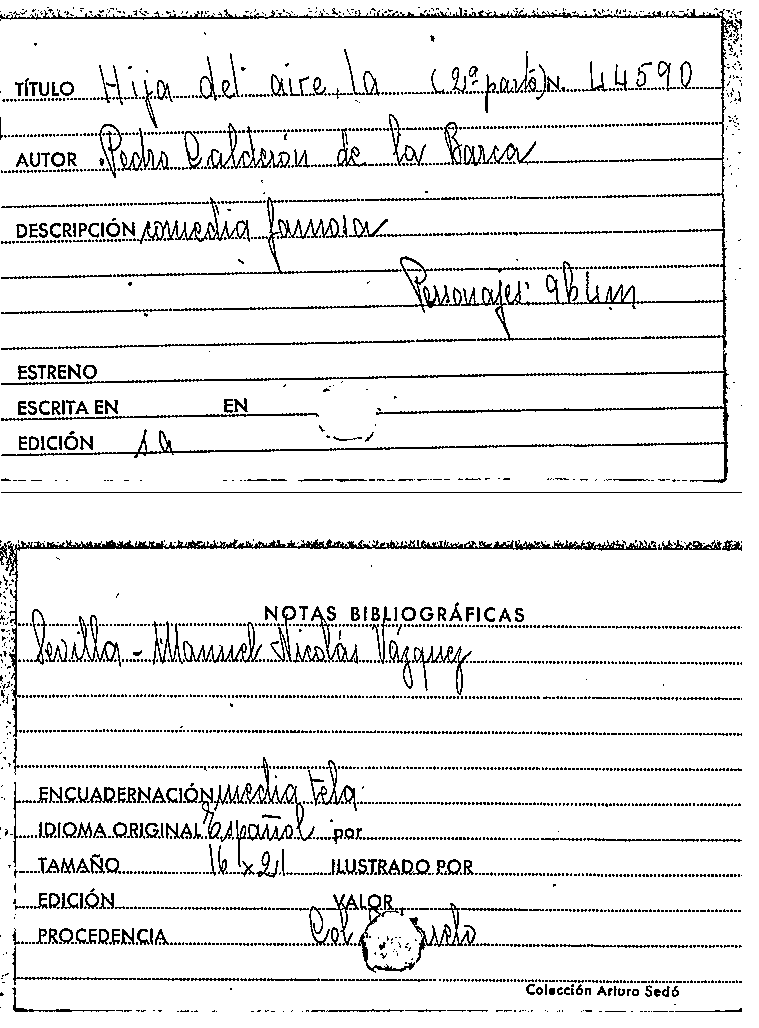 TÍTULO Hija del aire, la (2ª parte) N. 44590
AUTOR Pedro Calderón de la Barca
DESCRIPCIÓN comedia famosa
Personajes: 9h 4m
ESTRENO
ESCRITA EN EN
EDICIÓN s a
NOTAS BIBLIOGRÁFICAS
Sevilla - Manuel Nicolás Vázquez
ENCUADERNACIÓN media tela
IDIOMA ORIGINAL Español por
TAMAÑO 16 x 21 ILUSTRADO POR
EDICIÓN VALOR
PROCEDENCIA Col
Colección Arturo Sedó